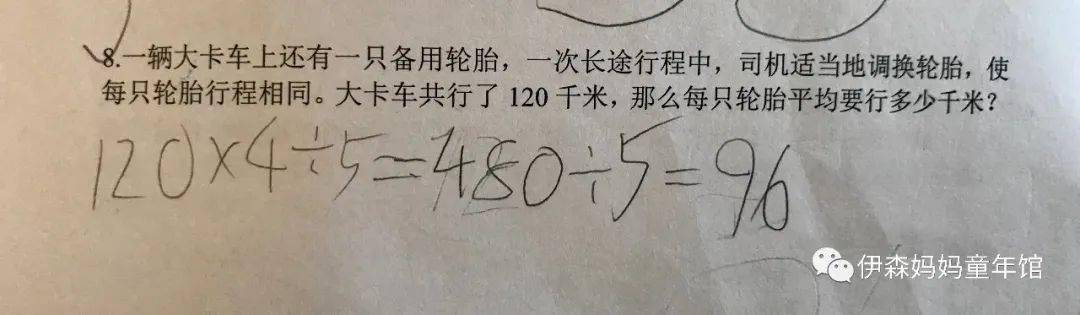 8.一辆大卡车上还有一只备用轮胎，一次长途行程中，司机适当地调换轮胎，使
每只轮胎行程相同。大卡车共行了 120 千米，那么每只轮胎平均要行多少千米？
120×4÷5=480÷5=96
伊森妈妈童年馆